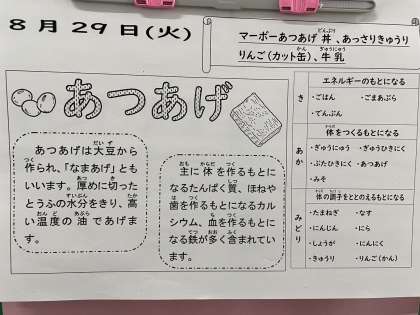 8月29日(火)
マーボーあつあげ丼、あっさりきゅうり
りんご(カット缶)、牛乳
あつあげ
あつあげは大豆から
作られ、「なまあげ」とも
いいます。厚めに切った
とうふの水分をきり、高
い温度の油であげま
す。
主に体を作るもとに
なるたんぱく質、ほねや
歯を作るもとになるカル
シウム、血を作るもとに
なる鉄が多く含まれてい
ます。
き
エネルギーのもとになる
・ごはん ・ごまあぶら
・でんぷん
あか
体をつくるもとになる
・ぎゅうにゅう ・ぎゅうひきにく
・ぶたひきにく ・あつあげ
・みそ
みどり
体の調子をととのえるもとになる
・たまねぎ ・なす
・にんじん ・にら
・しょうが ・にんにく
・きゅうり ・りんご(かん)